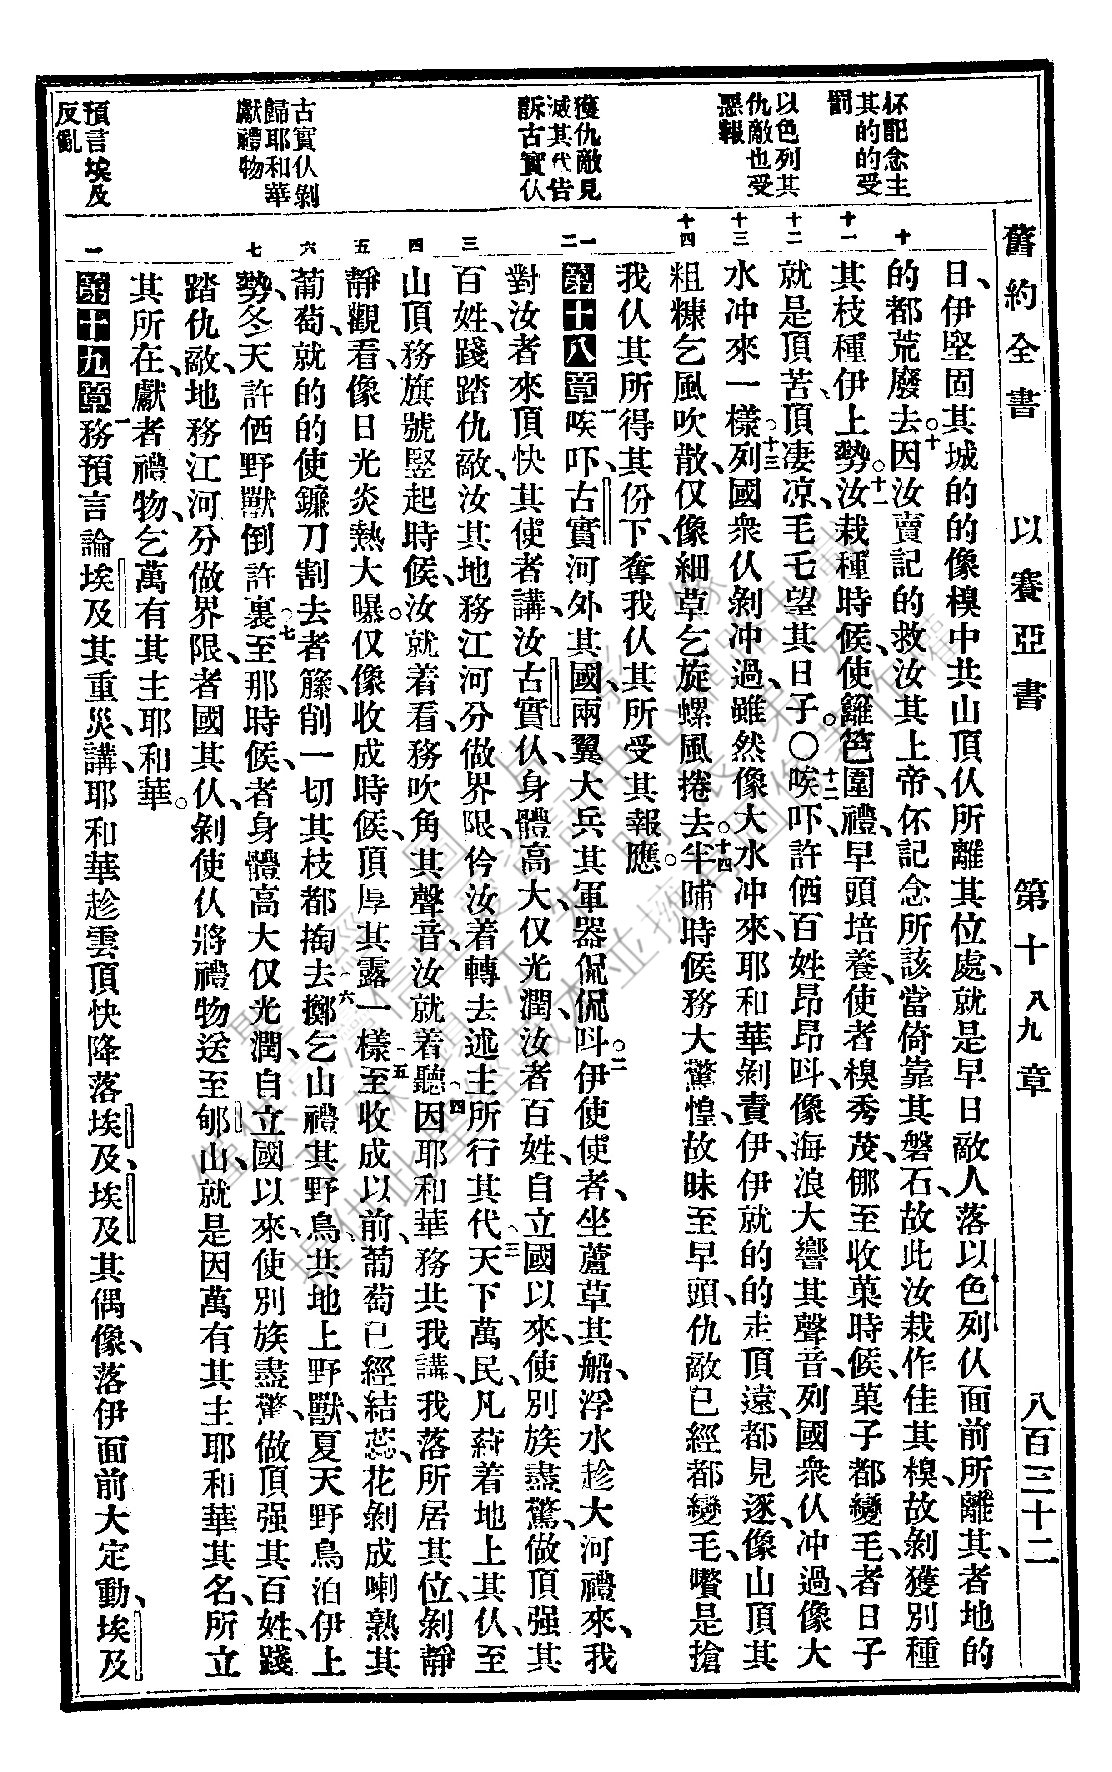 舊約全書　以賽亞書　第十八九章　八百三十二
伓記念主
其的的受
罰
以色列其
仇敵也受
惡報
獲仇敵見
滅其代告
訴古實仈
古實仈剝
歸耶和華
獻禮物
預言埃及
反亂
十
十一
十二
十三
十四
一
二
三
四
五
六
七
一
日、伊堅固其城的的像模中共山頂仈所離其位處、就是早日敵人落以色列仈面前所離其、者地的
的都荒廢去。十因汝賣記的救汝其上帝、伓記念所該當倚靠其磐石、故此汝栽作佳其模、故剝獲別種
其枝種伊上勢。十一汝栽種時候、使籬笆圍禮、早頭培養、使者模秀茂、㑚至收菓時候、菓子都變毛、者日子
就是頂苦、頂凄凉、毛乇望其日子。〇十二唉吓、許㑚百姓昂昂呌、像海浪大響其聲音、列國衆仈冲過、像大
水冲來一樣、十三列國衆仈剝冲過、雖然像大水冲來、耶和華剝責伊、伊就的的走頂遠、都見逐、像山頂其
粗糠乞風吹散、仅像細草乞旋螺風捲去。十四半晡時候務大驚惶、故昧至早頭、仇敵已經都變毛、嚽是搶
我仈其所得其份下、奪我仈其所受其報應。
第十八章一唉吓、古實河外其國、兩翼大兵其軍器侃侃呌。二伊使使者、坐蘆草其船、浮水趁大河禮來、我
對汝者來頂快其使者講、汝古實仈、身體高大、仅光潤、汝者百姓、自立國以來、使別族盡驚、做頂强其
百姓、踐踏仇敵、汝其地務江河分做界限、仱汝着轉去述主所行其代。三天下萬民、凡蹛着地上其仈、至
山頂務旗號竪起時候、汝就着看、務吹角其聲音、汝就着聽。四因耶和華務共我講、我落所居其位、剝靜
靜觀看、像日光炎熱大曝、仅像收成時候、頂厚其露一樣。五至收成以前、葡萄已經結蕊、花剝成喇熟其
葡萄、就的的使鐮刀割去者籐、削一切其枝都掏去、六擲乞山禮其野鳥、共地上野獸、夏天野鳥泊伊上
勢、冬天許㑚野獸倒許裏。七至那時候、者身體高大仅光潤、自立國以來、使別族盡驚、做頂强其百姓、踐
踏仇敵、地務江河分做界限、者國其仈、剝使仈將禮物送至郇山、就是因萬有其主耶和華其名、所立
其所在、獻者禮物、乞萬有其主耶和華。
第十九章一務預言論埃及其重災、講、耶和華趁雲頂快降落埃及、埃及其偶像、落伊面前大定動、埃及